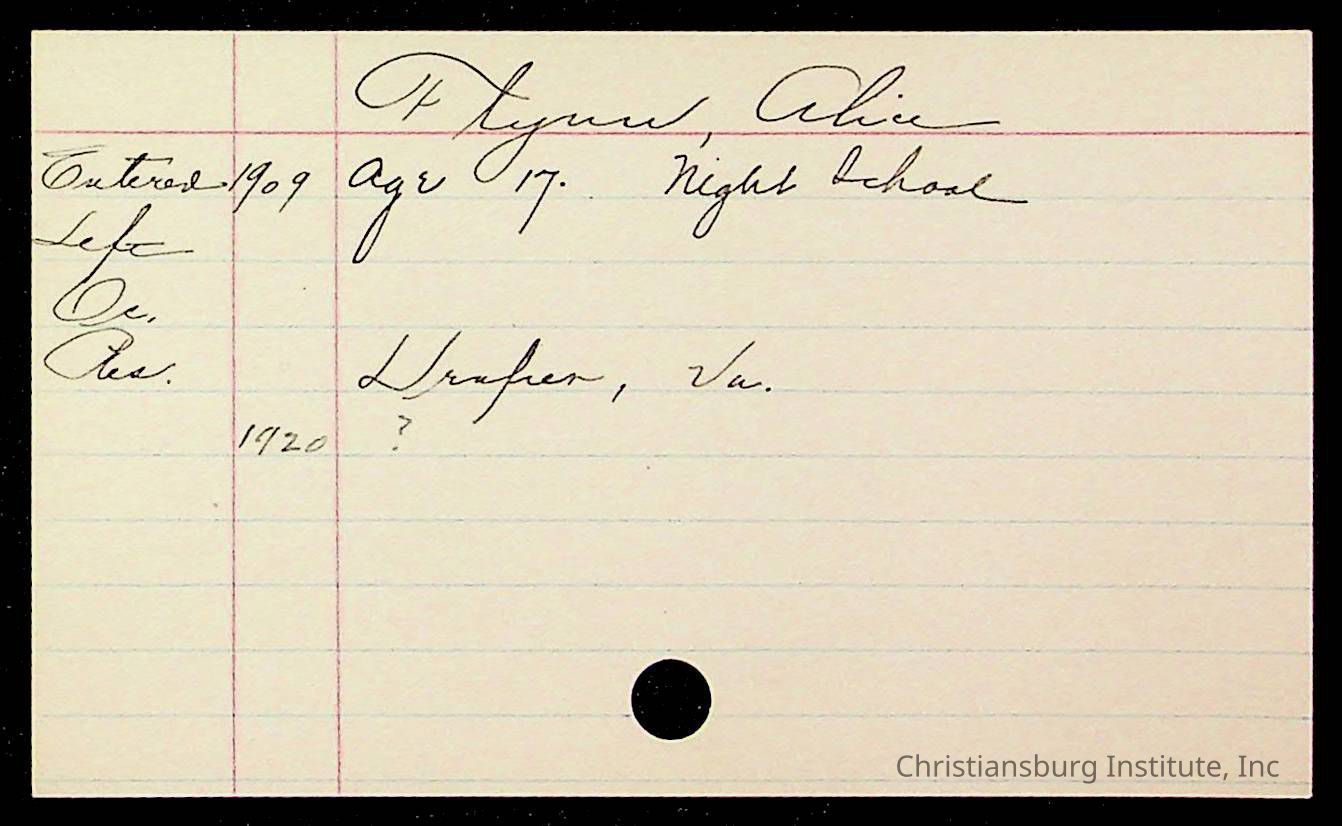 Flynn, Alice
Entered 1909 Age 17. Night School
Left
Oc.
Res. Draper, Va.
1920 ?
Christiansburg Institute, Inc